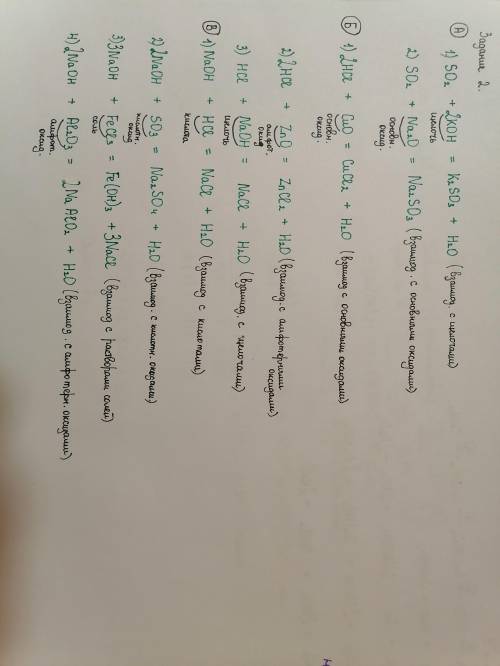 Задание 2.
(А) 1) SO₂ + 2KOH = K₂SO₃ + H₂O (взаимод. с щелочами)
щелочь
2) SO₂ + Na₂O = Na₂SO₃ (взаимод. с основными оксидами)
основн.
оксид.
(Б) 1) 2HCl + CuO = CuCl₂ + H₂O (взаимод с основными оксидами)
основн.
оксид.
2) 2HCl + ZnO = ZnCl₂ + H₂O (взаимод. с амфотерными
амфот. оксидами)
оксид
3) HCl + NaOH = NaCl + H₂O (взаимод. с щелочами)
щелочь
(В) 1) NaOH + HCl = NaCl + H₂O (взаимод с кислотами)
кислота
2) 2NaOH + SO₃ = Na₂SO₄ + H₂O (взаимод. с кислотн. оксидами)
кислотн.
оксид
3) 3NaOH + FeCl₃ = Fe(OH)₃ + 3NaCl (взаимод с растворами солей)
соль
4) 2NaOH + Al₂O₃ = 2NaAlO₂ + H₂O (взаимод. с амфотерн. оксидами)
амфот.
оксид.